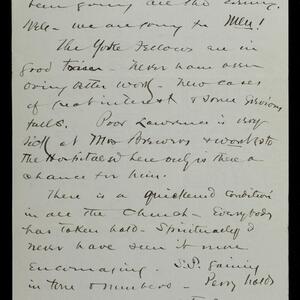 been going all the
Well - we are going to Men!
The Yoke Fellows are in
good - never have seen
doing better work - new cases
of great interest & some serious
falls. Poor Lawrence is very
sick at Mrs & wont go to
the Hospital where only is there a
chance for him.
There is a quickened condition
in all the Church - Everybody
has taken hold - Spiritually I
never have seen it more
Encouraging. S.S. gaining
in tone & numbers - Perry holds